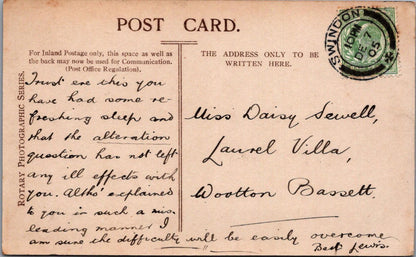 POST CARD.
For Inland Postage only, this space as well as
the back may now be used for Communication.
(Post Office Regulation).
THE ADDRESS ONLY TO BE
WRITTEN HERE.
SWINDON
DE 7
05
ROTARY PHOTOGRAPHIC SERIES.
Trust ere this you
have had some re-
freshing sleep and
that the alteration
question has not left
any ill effects with
you. Altho' explained
to you in such a mis-
leading manner I
am sure the difficulty will be easily overcome
Best
Miss Daisy Sewell,
Laurel Villa,
Wootton Bassett.